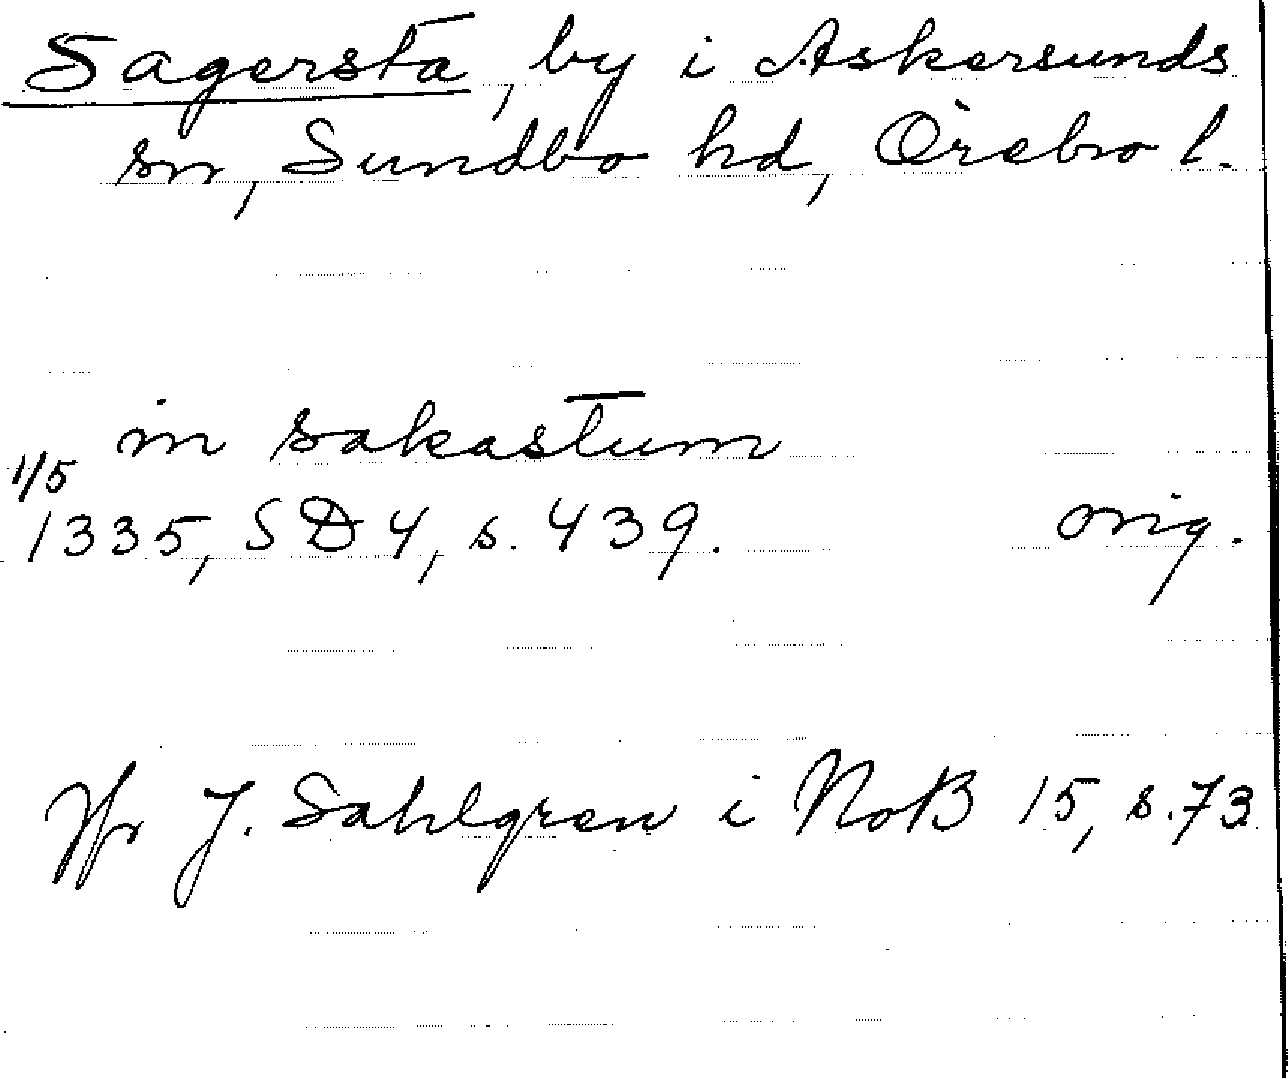 Sagersta, by i Askersunds
sn, Sundbo hd, Örebro l.
in sakastum
1/5
1335, SD 4, s. 439. orig.
Jfr J. Sahlgren i NoB 15, s. 73.